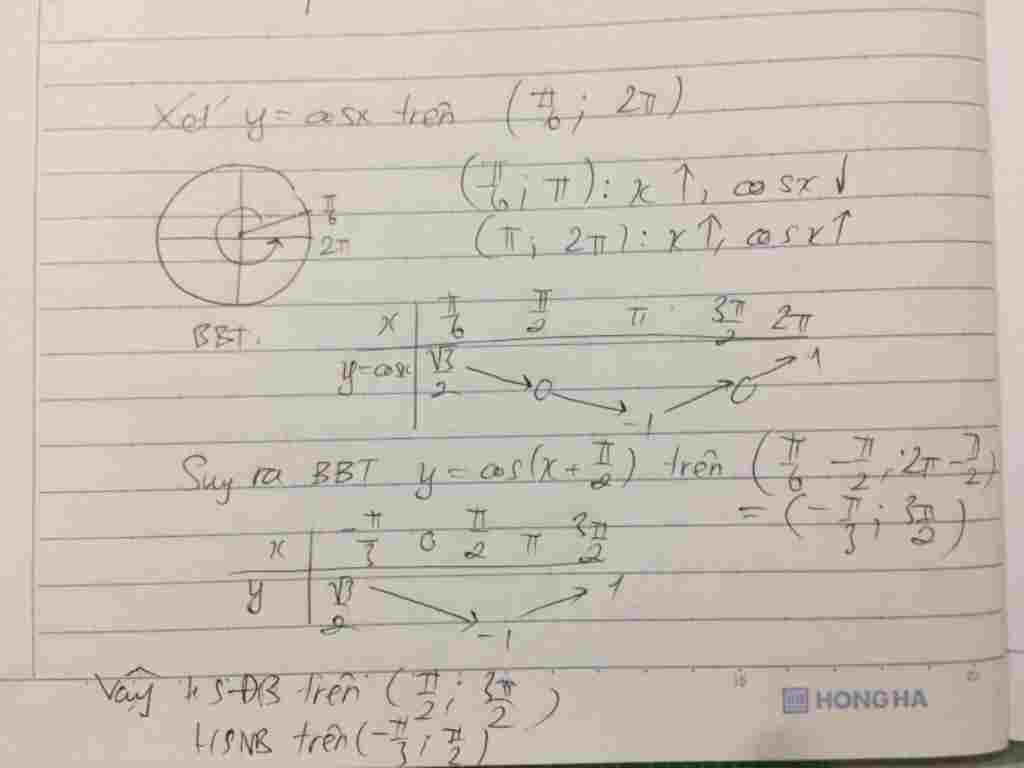 Xét y = cosx trên (π/6; 2π)
(π/6; π): x ↑, cosx ↓
(π; 2π): x ↑, cosx ↑
π/6
2π
BBT.
x π/6 π/2 π 3π/2 2π
y=cosx √3/2 0 -1 0 1
Suy ra BBT y = cos(x + π/2) trên (π/6 - π/2; 2π - π/2)
= (-π/3; 3π/2)
x -π/3 0 π/2 π 3π/2
y √3/2 -1 1
Vậy HSĐB trên (π/2; 3π/2)
HSNB trên (-π/3; π/2)
15 20
HONG HA